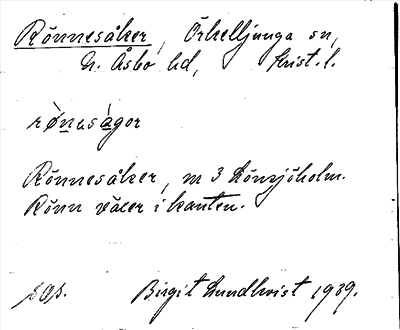 Rönnesåker, Örkelljunga sn,
N. Åsbo hd, Krist. l.
rønəságor
Rönnesåker, m 3 Lönsjöholm.
Rönn växer i kanten.
Birgit Lundkvist 1939.